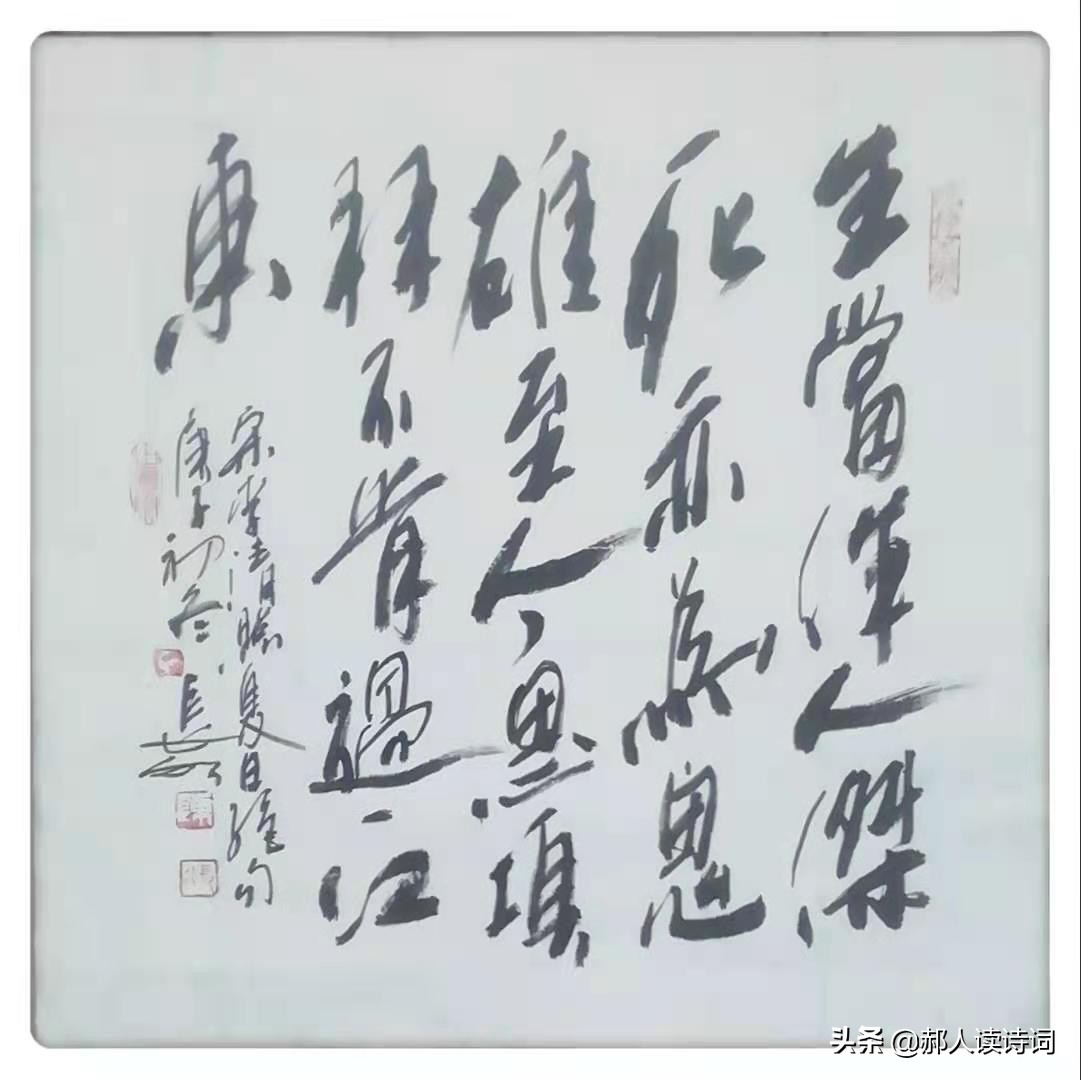 生當作人傑
死亦為鬼
雄至今思項
羽不肯過江
東
宋李清照夏日絕句
庚子初冬
头条 @郝人读诗词